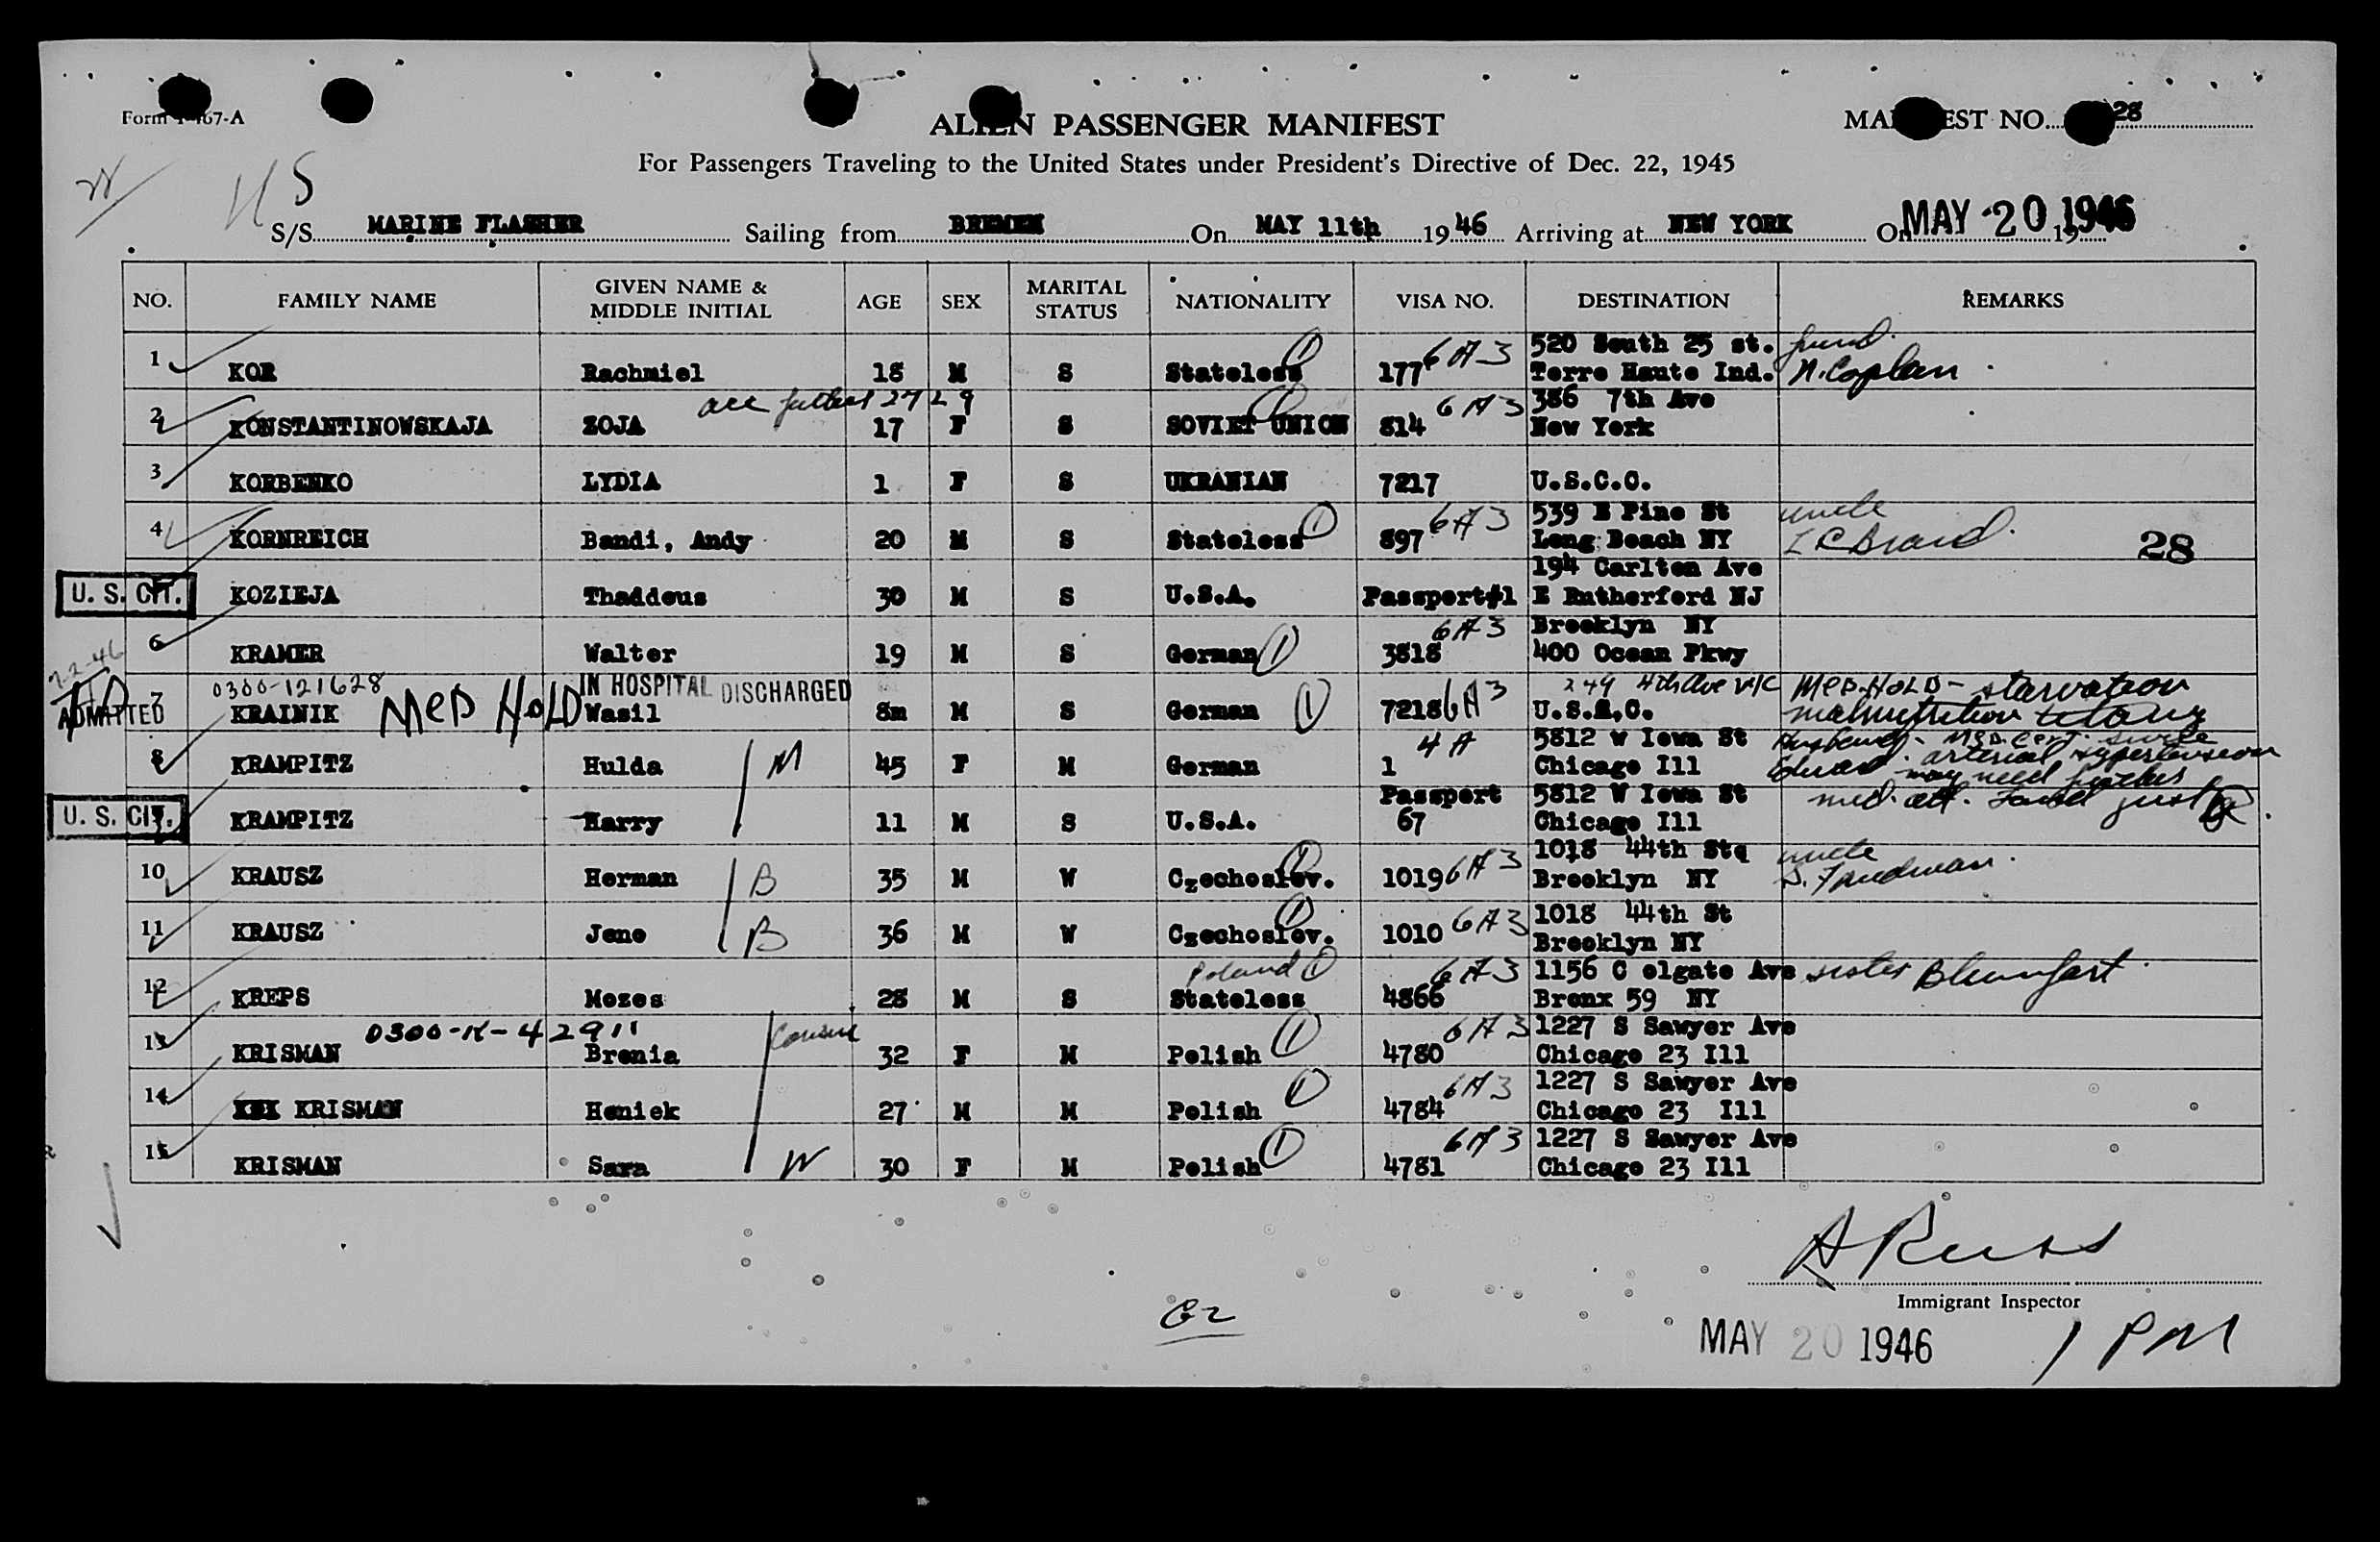 Form I-467-A
ALIEN PASSENGER MANIFEST
MANIFEST NO. 28
For Passengers Traveling to the United States under President's Directive of Dec. 22, 1945
US
S/S MARINE FLASHER Sailing from BREMEN On MAY 11th 1946 Arriving at NEW YORK On MAY 20 1946
NO. FAMILY NAME GIVEN NAME & MIDDLE INITIAL AGE SEX MARITAL STATUS NATIONALITY VISA NO. DESTINATION REMARKS
6A3 520 South 25 st. friend
1 KOR Rachmiel 18 M S Stateless 177 Terre Haute Ind. N. Coplan
6A3 386 7th Ave
2 KONSTANTINOWSKAJA ZOJA 17 F S SOVIET UNION 814 New York
3 KORBENKO LYDIA 1 F S UKRANIAN 7217 U.S.C.C.
6A3 539 E Pine St uncle
4 KORNREICH Bandi, Andy 20 M S Stateless 897 Long Beach NY
28
194 Carlton Ave
U. S. CIT. KOZIEJA Thaddeus 30 M S U.S.A. Passport#1 E Rutherford NJ
6A3 Brooklyn NY
6 KRAMER Walter 19 M S German 3818 400 Ocean Pkwy
0300-121628 IN HOSPITAL DISCHARGED MED. HOLD - starvation
ADMITTED 7 KRAINIK MED HOLD Wasil 8m M S German 7218 6A3 U.S.C.C. malnutrition
4A 5812 W Iowa St Husband - Med. cert.
8 KRAMPITZ Hulda M 45 F M German 1 Chicago Ill arterial hypertension
may need
Passport 5812 W Iowa St med. att.
U. S. CIT. KRAMPITZ Harry 11 M S U.S.A. 67 Chicago Ill
1018 44th St uncle
10 KRAUSZ Herman B 35 M W Czechoslov. 1019 6A3 Brooklyn NY
1018 44th St
11 KRAUSZ Jeno B 36 M W Czechoslov. 1010 6A3 Brooklyn NY
Poland 6A3 1156 C olgate Ave sister
12 KREPS Mozes 28 M S Stateless 4866 Bronx 59 NY
0300-K-42911 cousin 6A3 1227 S Sawyer Ave
13 KRISMAN Bronia 32 F M Polish 4780 Chicago 23 Ill
6A3 1227 S Sawyer Ave
14 KRISMAN Heniek 27 M M Polish 4784 Chicago 23 Ill
6A3 1227 S Sawyer Ave
15 KRISMAN Sara W 30 F M Polish 4781 Chicago 23 Ill
A Russ
Immigrant Inspector
MAY 20 1946 1 PM